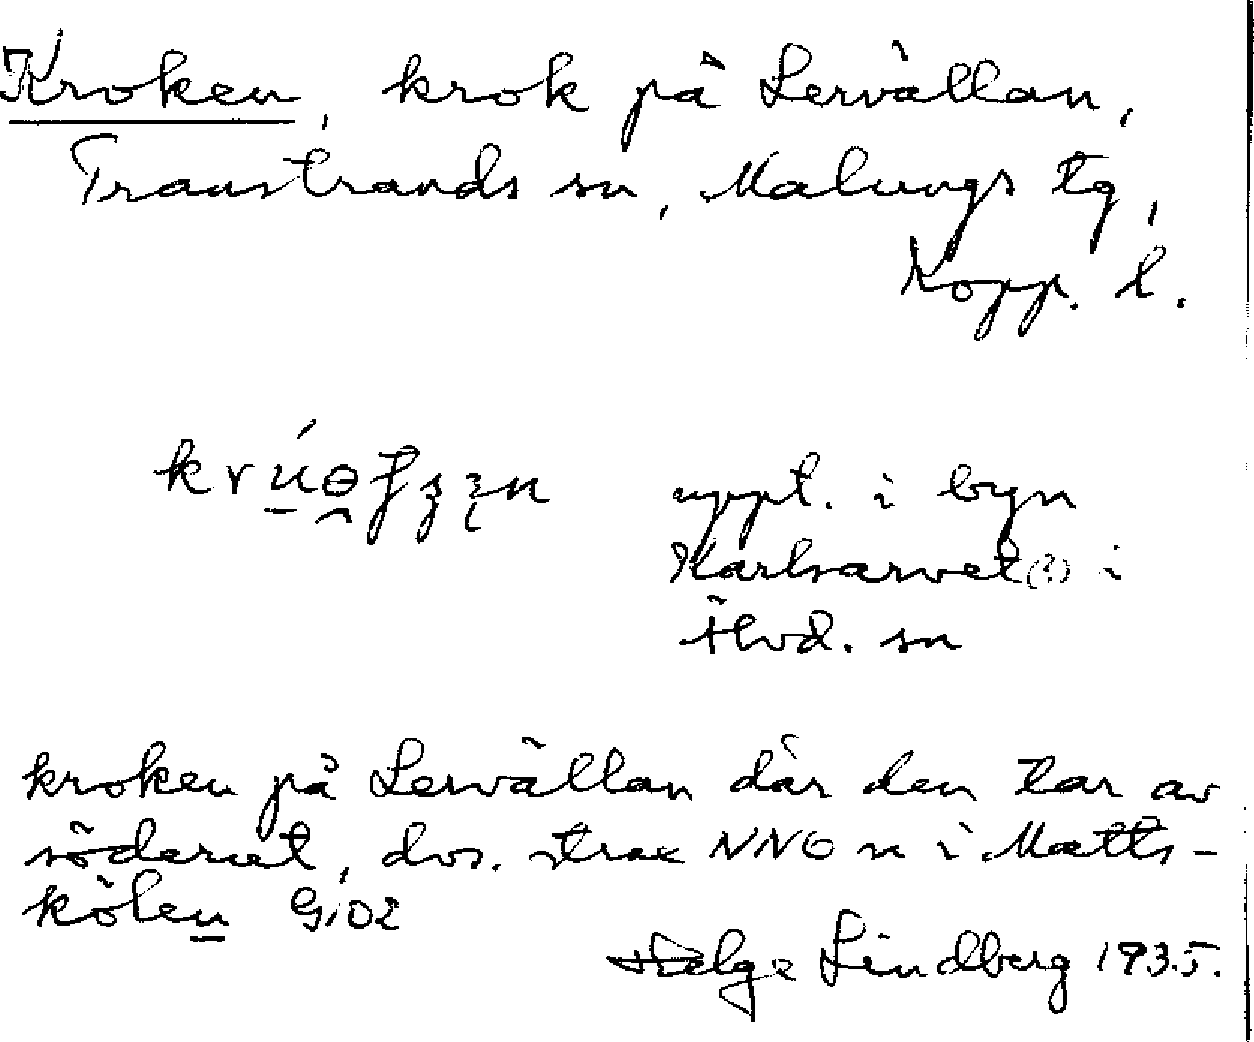 Kroken, krok på Lervällan,
Transtrands sn, Malungs tg,
Kopp. l.
uppt. i byn
Karlsarvet (?) i
Älvd. sn
kroken på Lervällan där den tar av
söderut, dvs. strax NNO n i Matts-
kölen G1D2
Helge Lindberg 1935.